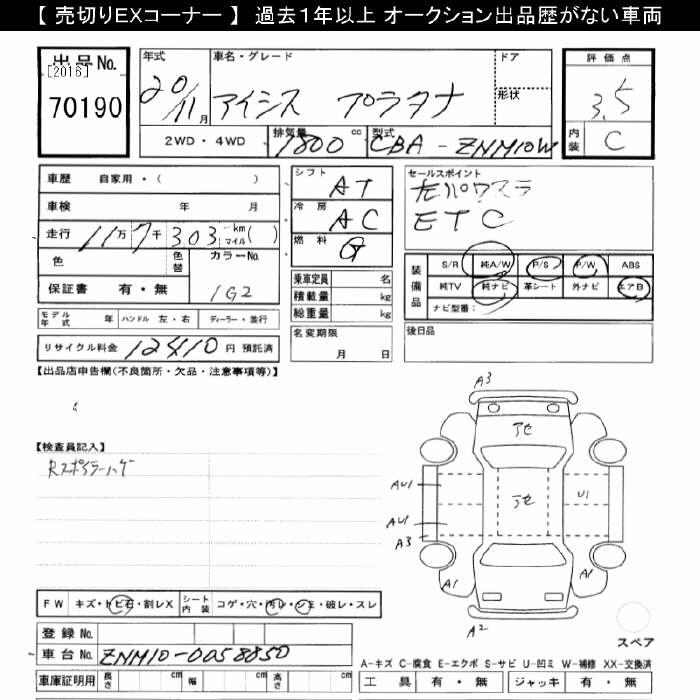 【 売切りEXコーナー 】 過去1年以上 オークション出品歴がない車両
出品No.
[2016]
70190
年式
20/11月
車名・グレード
アイシス プラタナ
ドア
形状
評価点
3.5
内装 C
2WD・4WD
排気量 1800 cc
型式 CBA-ZNM10W
車歴 自家用・( )
車検 年 月
走行 11万7千303 km マイル( )
色
色替
カラーNo.
1G2
保証書 有・無
シフト AT
冷房 AC
燃料 G
乗車定員 名
積載量 kg
総重量 kg
名変期限
月 日
セールスポイント
左パワスラ
ETC
装備品
S/R 純A/W P/S P/W ABS
純TV 純ナビ 革シート 外ナビ エアB
ナビ型番:
後日品
モデル年式 年 ハンドル 左・右 ディーラー・並行
リサイクル料金 12410 円 預託済
【出品店申告欄(不良箇所・欠品・注意事項等)】
【検査員記入】
Rスポイラーハゲ
A3
アセ
アセ
AU1
U1
AU1
A3
A1
A1
A2
スペア
FW キズ・トビ石・割レX シート内装 コゲ・穴・汚レ・シミ・破レ・スレ
登録No.
車台No. ZNM10-0058850
車庫証明用 長さ cm 幅 cm 高さ cm
A-キズ C-腐食 E-エクボ S-サビ U-凹ミ W-補修 XX-交換済
工具 有・無 ジャッキ 有・無